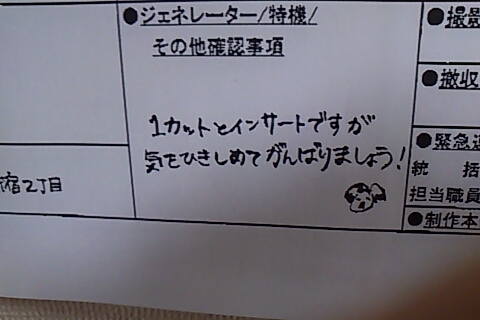 ●ジェネレーター/特機/
その他確認事項
1カットとインサートですが
気をひきしめてがんばりましょう!
宿2丁目
●撮影
●撤収
●緊急連
統 括
担当職員
●制作本